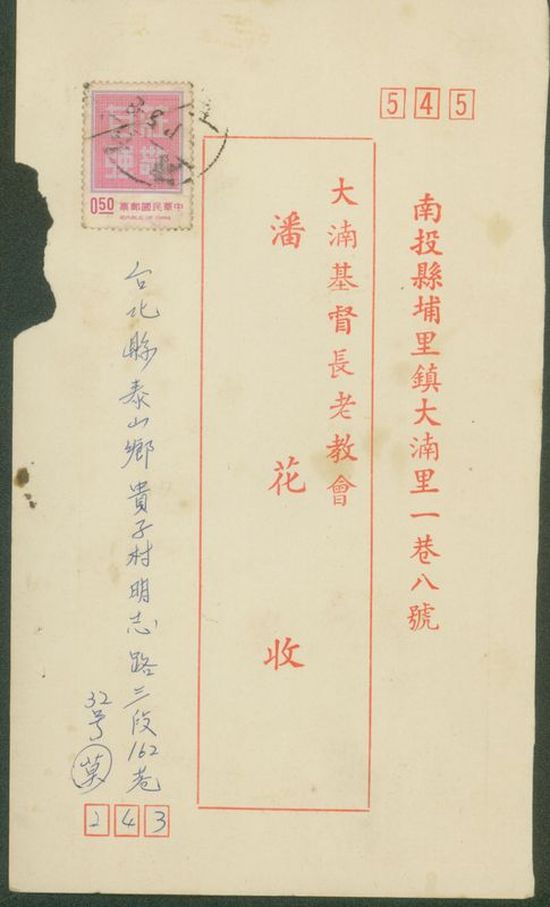 545
南投縣埔里鎮大湳里一巷八號
大湳基督長老教會
潘花收
莊敬自強
0.50
中華民國郵票
REPUBLIC OF CHINA
台北縣泰山鄉貴子村明志路三段162巷
32号
243